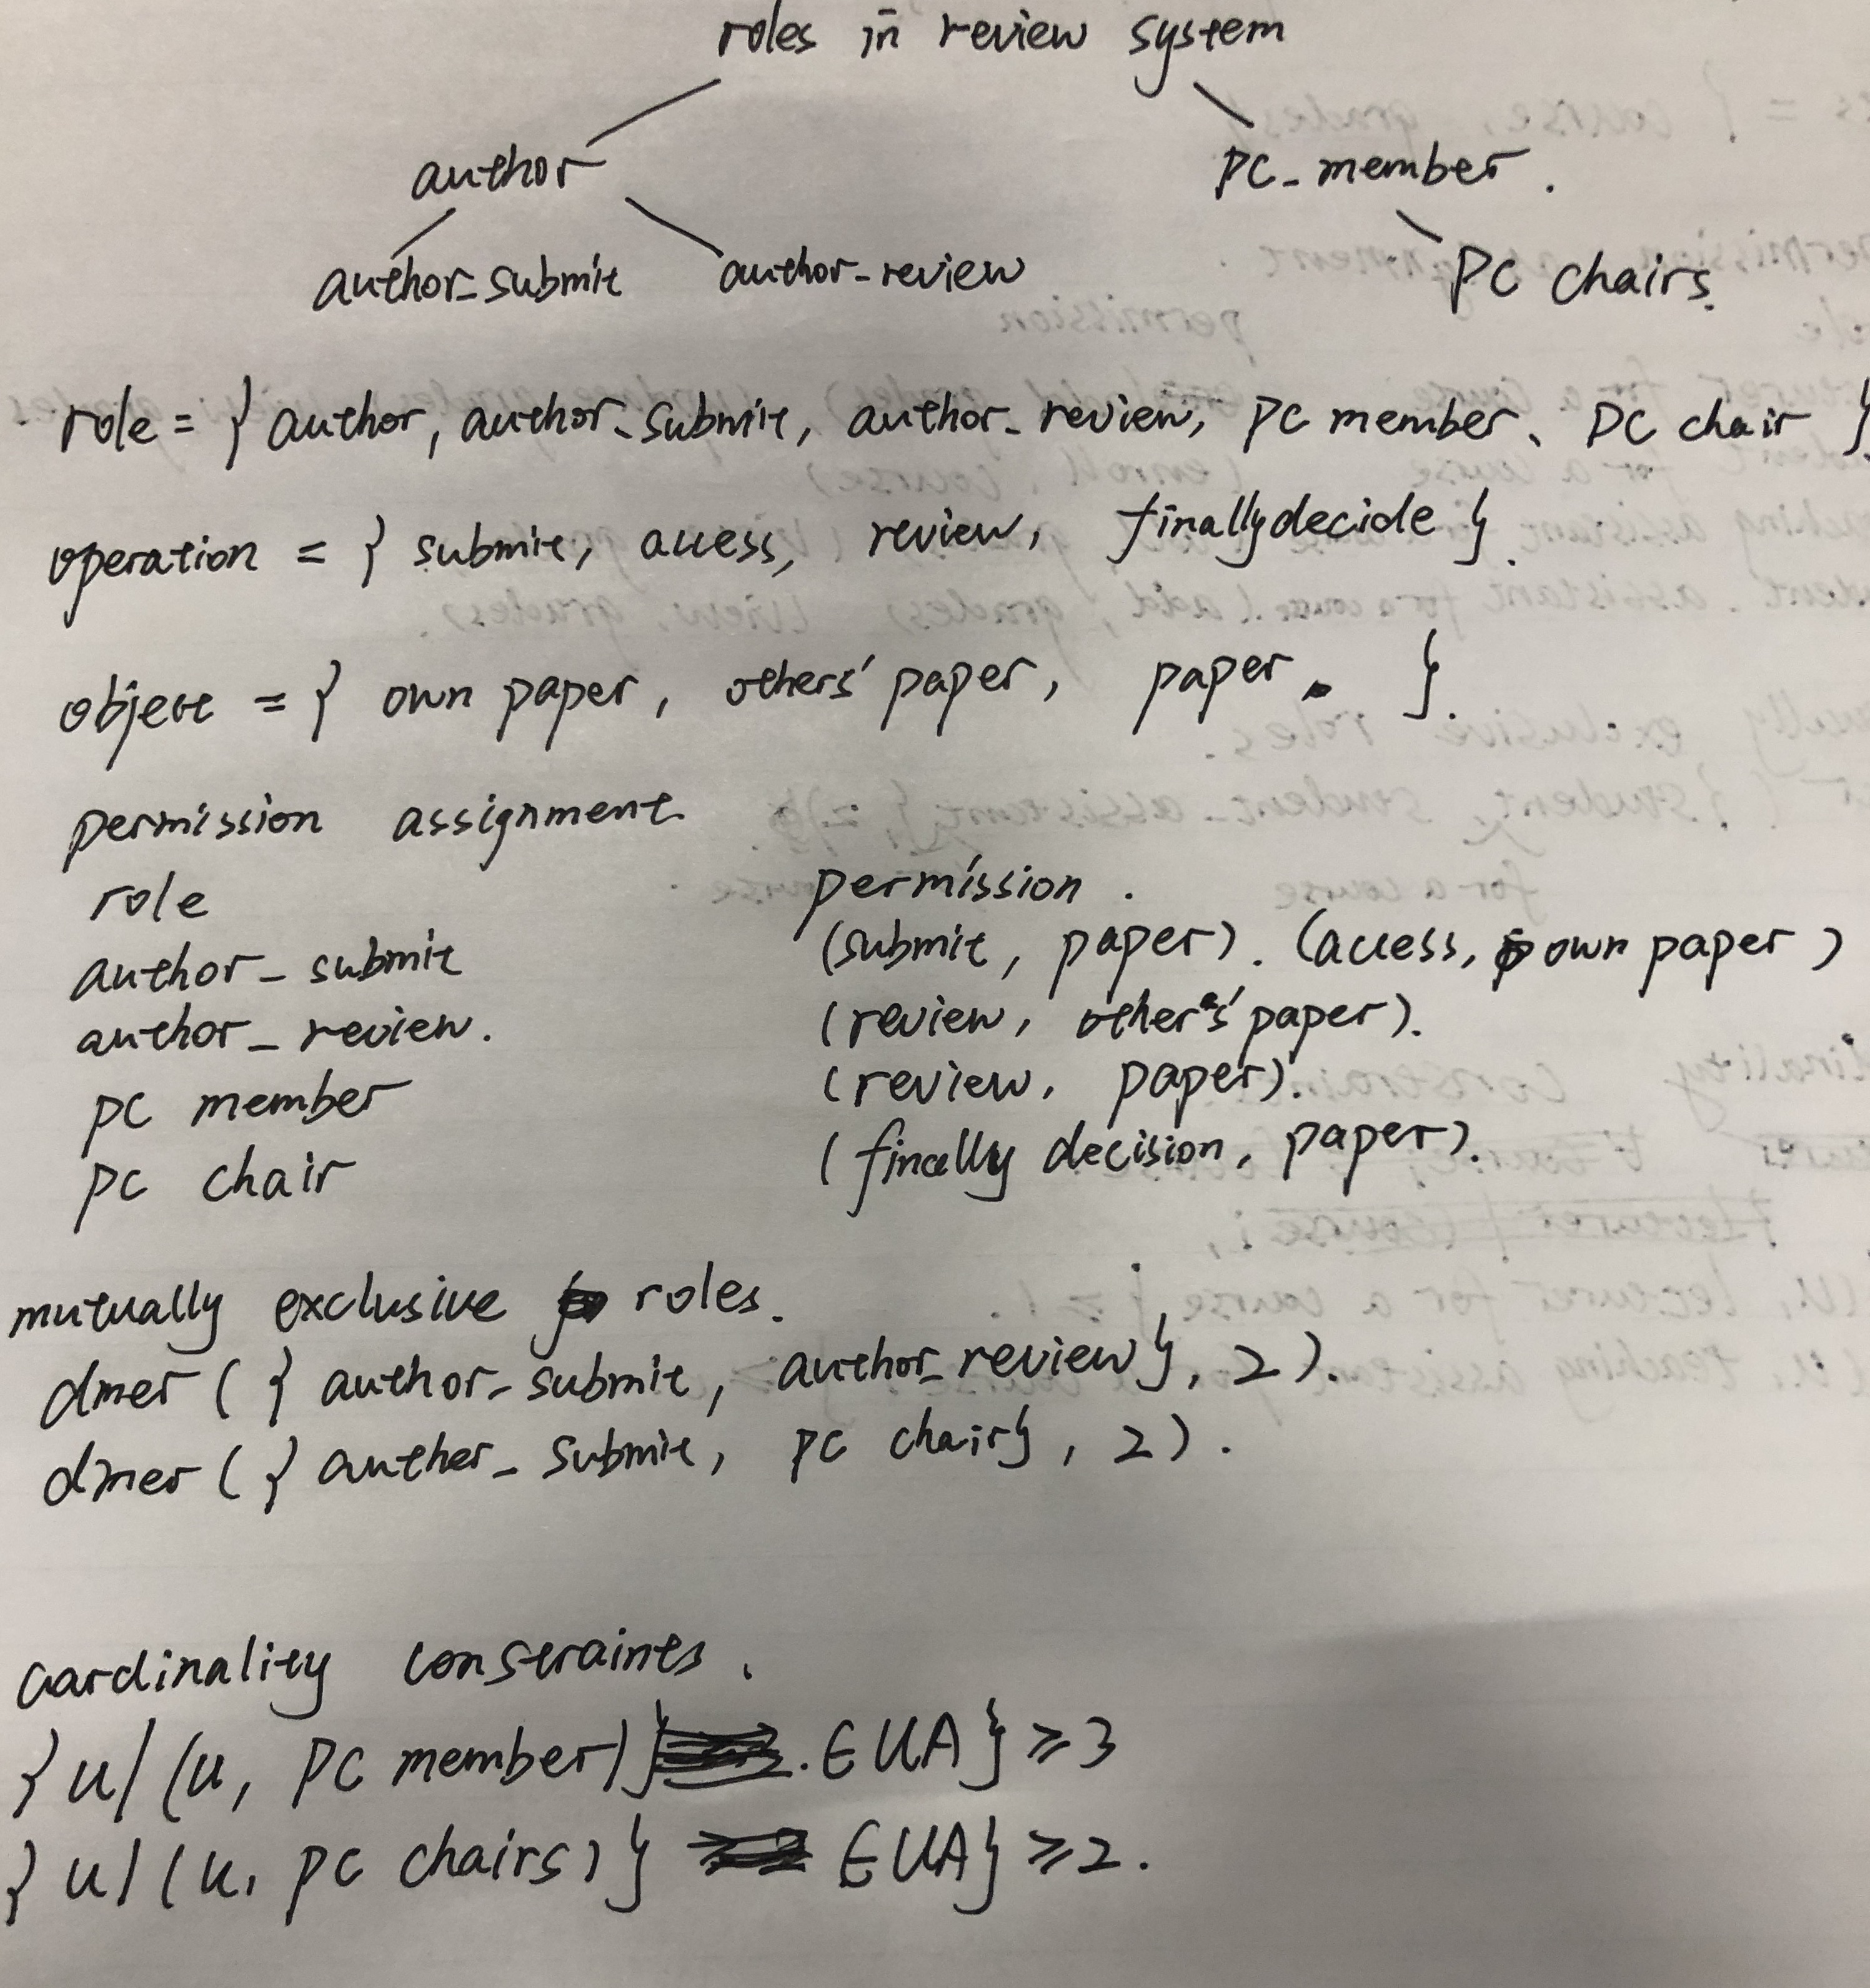 roles in review system
author PC_member.
author_submit author_review PC chairs.
role = { author, author_submit, author_review, PC member、 PC chair }
operation = { submit, access, review, finallydecide }.
object = { own paper, others' paper, paper. }.
permission assignment.
role permission.
author_submit (submit, paper). (access, own paper)
author_review. (review, others' paper).
PC member (review, paper).
PC chair (finally decision, paper).
mutually exclusive roles.
dmer ({ author_submit, author_review}, 2).
dmer ({ auther_submit, PC chair}, 2).
cardinality constraints.
{u/(u, PC member)} . ∈UA} ≥3
{u/(u, PC chairs)} ∈UA} ≥2.